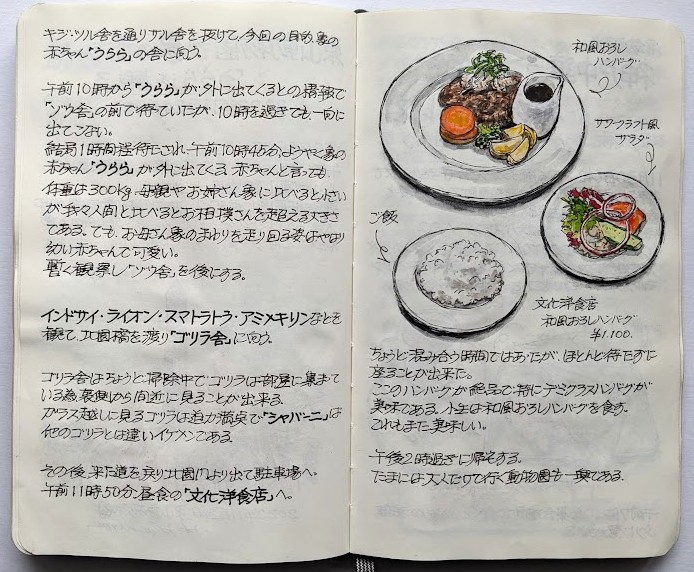 キジ・ツル舎を通りサル舎を抜けて、今回の目的、象の
赤ちゃん「うらら」の舎に向う。
午前10時から「うらら」が、外に出てくるとの情報で
「ゾウ舎」の前で待ていたが、10時を過ぎても一向に
出てこない。
結局1時間近待たされ、午前10時45分、ようやく象の
赤ちゃん「うらら」が外に出てくる。赤ちゃんと言っても、
体重は300kg。母親やお姉さん象に比べると小さい
が我々人間と比べるとお相撲さんを超える大きさ
である。でも、お母さん象のまわりを走り回る姿はやはり
幼い赤ちゃんで可愛い。
暫く観察し「ゾウ舎」を後にする。
インドサイ・ライオン・スマトラトラ・アミメキリンなどを
観て、北園橋を渡り「ゴリラ舎」に向う。
ゴリラ舎はちょうど掃除中でゴリラは部屋に集まて
いる為、裏側から間近に見ることが出来る。
ガラス越しに見るゴリラは迫力満点で「シャバーニ」は
他のゴリラとは違いイケメンである。
その後、来た道を戻り北園門より出て駐車場へ。
午前11時50分、昼食の「文化洋食店」へ。
和風おろし
ハンバーグ
サワークラフト風
サラダ
ご飯
文化洋食店
和風おろしハンバーグ
¥1,100.
ちょうど混み合う時間ではあったが、ほとんど待たずに
座ることが出来た。
ここのハンバーグが絶品で、特にデミグラスハンバーグが
美味である。小生は和風おろしハンバーグを食す。
これもまた美味しい。
午後2時過ぎに帰宅する。
たまには大人だけで行く動物園も一興である。